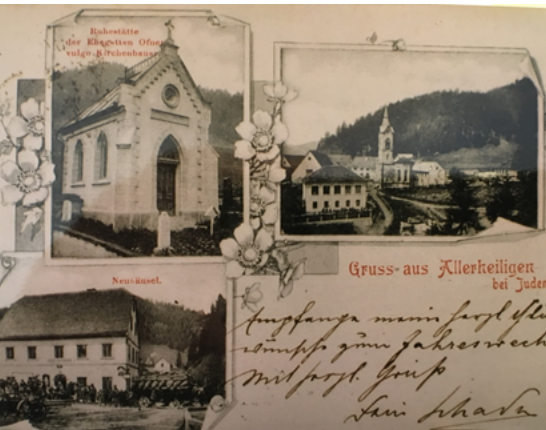 Ruhestätte
der Ehegatten Ofner
vulgo Kirchenbauer
Gruss aus Allerheiligen
bei Juden
Neuhäusel.
Empfange meine herzl. Glü
wünsche zum Jahreswech
Mit herzl. Gruß